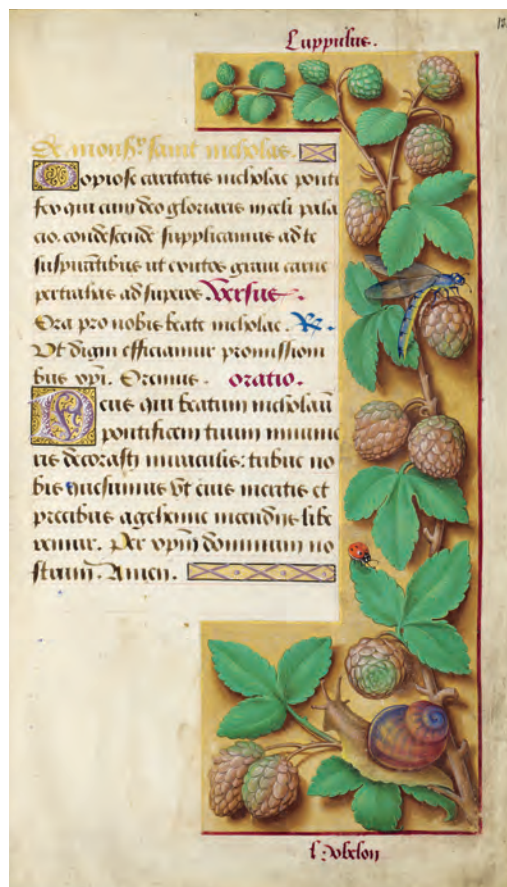 Luppulus.
De monsr. saint nicholas.
Copiose caritatis nicholae ponti
fex qui cum deo gloriaris in celi pala
cio. condescende supplicamus ad te
suspirātibus ut exutos graui carne
pertrahas ad superos. Versus.
Ora pro nobis beate nicholae. R.
Vt digni efficiamur promissioni
bus xpi. Oremus. oratio.
Deus qui beatum nicholaū
pontificem tuum innume
ris decorasti miraculis: tribue no
bis quesumus vt eius meritis et
precibus a gehenne incendiis libe
remur. Per xpm̄ dominum no
strum. Amen.
l'Obelon